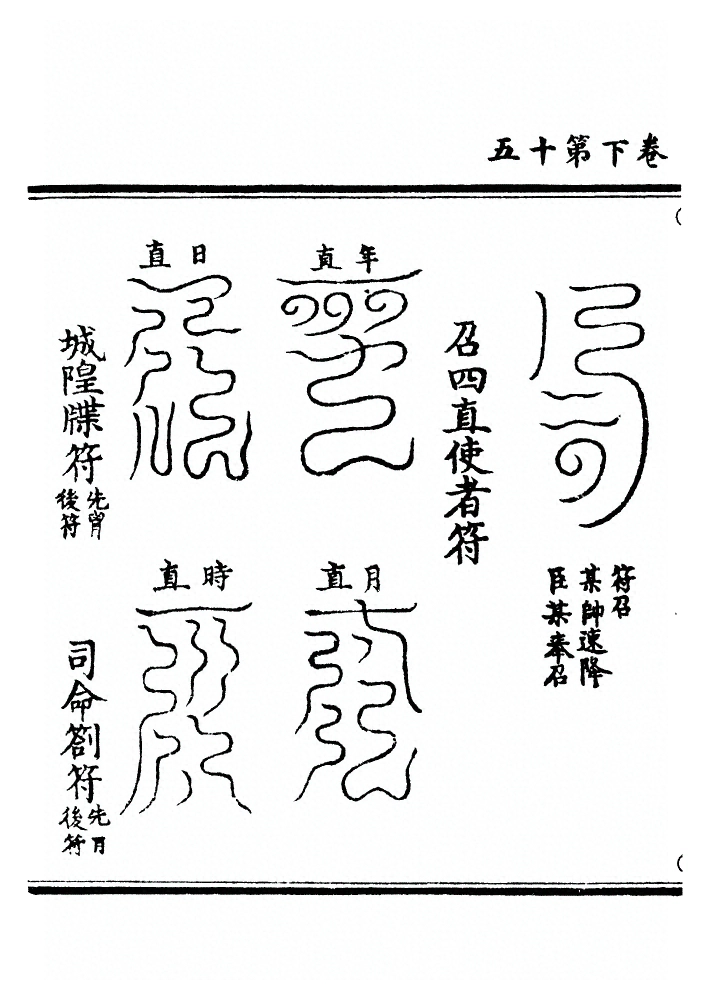 卷下第十五
符召
某帥速降
臣某奉召
召四直使者符
年直
月直
日直
時直
城隍牒符
先胃
後符
司命劄符
先月
後符